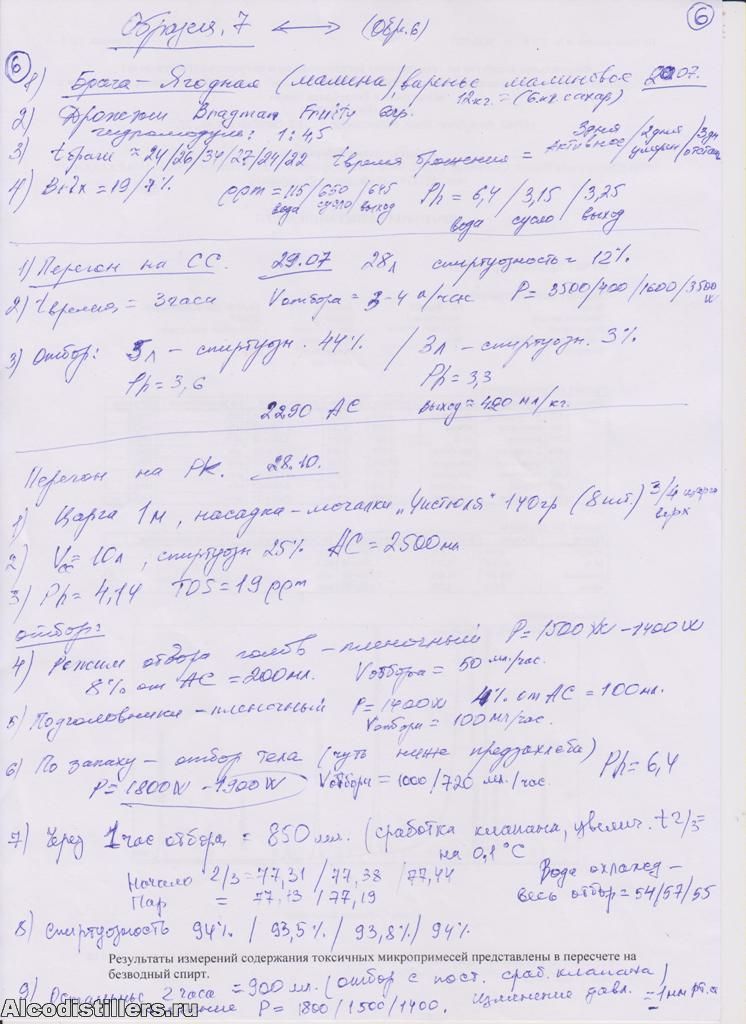 6
Образец. 7 ⟷ (Обр. 6)
6
1) Брага – Ягодная (малина) варенье малиновое 20.07.
12 кг. = (6 кг. сахар)
2) Дрожжи Vragman Fruity
гидромодуль: 1:4,5
3) t браги = 24/26/34/27/24/22 t время брожения = 3 дня активное / 2 дня умерен / 3 дн отстой
4) Brix = 19/7% ppm = 115/650/645 Ph = 6,4 / 3,15 / 3,25
вода сусло выход вода сусло выход
1) Перегон на СС. 29.07 28 л спиртуозность = 12%
2) t время = 3 часа Vотбора = 3-4 л/час P = 3500/700/1600/3500 W
3) Отбор: 5 л – спиртуозн. 44% / 3 л – спиртуозн. 3%
Ph = 3,6 Ph = 3,3
2290 АС выход = 420 мл/кг.
Перегон на РК. 28.10.
1) Царга 1 м, насадка – мочалки „Чистюля" 140 гр (8 шт) 3/4 царга верх
2) Vсс = 10 л, спиртуозн 25% АС = 2500 мл
3) Ph = 4,14 TDS = 19 ppm
отбор:
4) Режим отбора голов – пленочный P = 1500 W – 1400 W
8% от АС = 200 мл. Vотбора = 50 мл/час.
5) Подголовники – пленочный P = 1400 W 4% от АС = 100 мл.
Vотбора = 100 мл/час.
6) По запаху – отбор тела (чуть ниже предзахлеба)
P = 1800 W – 1900 W Vотбора = 1000/720 мл./час. Ph = 6,4
7) Через 1 час отбора = 850 мл. (сработка клапана, увелич. t 2/3 =
на 0,1°С
Начало 2/3 = 77,31 / 77,38 / 77,44 Вода охлажд –
Пар = 77,13 / 77,19 весь отбор = 54/57/55
8) Спиртуозность 94% / 93,5% / 93,8% / 94%
Результаты измерений содержания токсичных микропримесей представлены в пересчете на
безводный спирт.
9) Остальные 2 часа = 900 мл. (отбор с пост. сраб. клапана)
P = 1800/1500/1400. Изменение давл. = 1 мм рт. с
Alcodistillers.ru